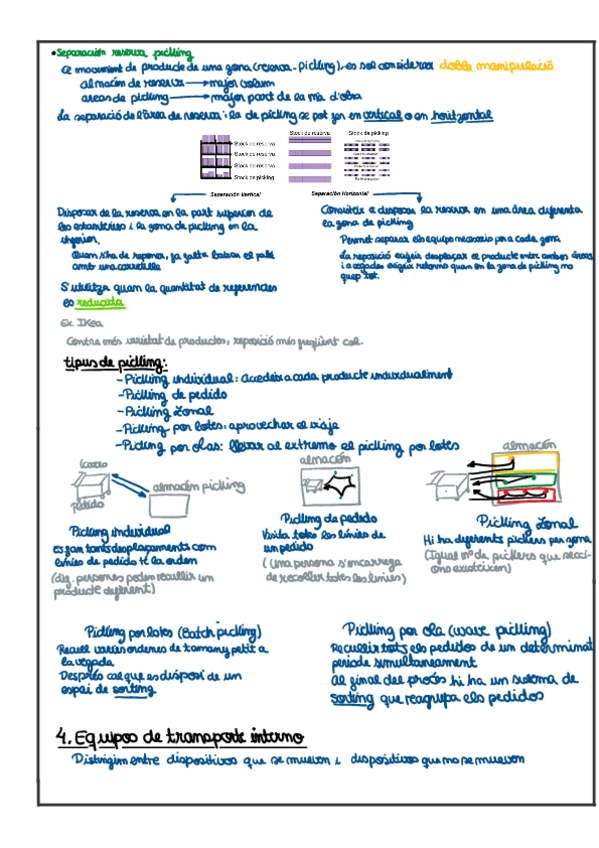 • Separación reserva picking
El moviment de producte de una zona (reserva-picking), es sol considerar doble manipulació
almacén de reserva → major volum
areas de picking → major part de la mà d'obra
La separació de l'àrea de reserva i la de picking se pot fer en vertical o en horitzontal
Stock de reserva
Stock de reserva
Stock de reserva
Stock de picking
Stock de reserva
Stock de picking
Separación Vertical
Separación Horizontal
Disposar de la reserva en la part superior de
les estanteries i la zona de picking en la
inferior.
Quan s'ha de reposar, fa falta baixar el palé
amb una carretilla
S'utilitza quan la quantitat de referències
es reducida
Ex: IKea
Contra més varietat de productes, reposició més freqüent cal.
Consisteix a disposar la reserva en una àrea diferenta
la zona de picking
Permet separar els equips necesaris per a cada zona
La reposició exigeix desplaçar el producte entre ambdues àrees
i a vegades exigeix retorno quan en la zona de picking no
cap tot.
tipus de picking:
- Picking individual: Accedeix a cada producte individualment
- Picking de pedido
- Picking Zonal
- Picking por lotes: aprovechar el viaje
- Picking por olas: llevar al extremo el picking por lotes
Carro
pedido
almacén picking
Picking individual
es fan tants desplaçaments com
línies de pedido té la orden
(dif. persones poden recullir un
producte diferent)
almacén
Picking de pedido
Visita totes les línies de
un pedido
(Una persona s'encarrega
de recoller totes les línies)
almacén
Picking Zonal
Hi ha diferents pickers per zona
(Igual nº de pickers que secci-
ons existeixen)
Picking por lotes (Batch picking)
Recull varies ordenes de tamany petit a
la vegada
Després cal que es disposi de un
espai de sorting
Picking por ola (wave picking)
Recullir tots els pedidos de un determinat
període simultaneament
Al final del procés hi ha un sistema de
sorting que reagrupa els pedidos
4. Equipos de transporte interno
Distingim entre dispositivos que se mueven i dispositivos que no se mueven